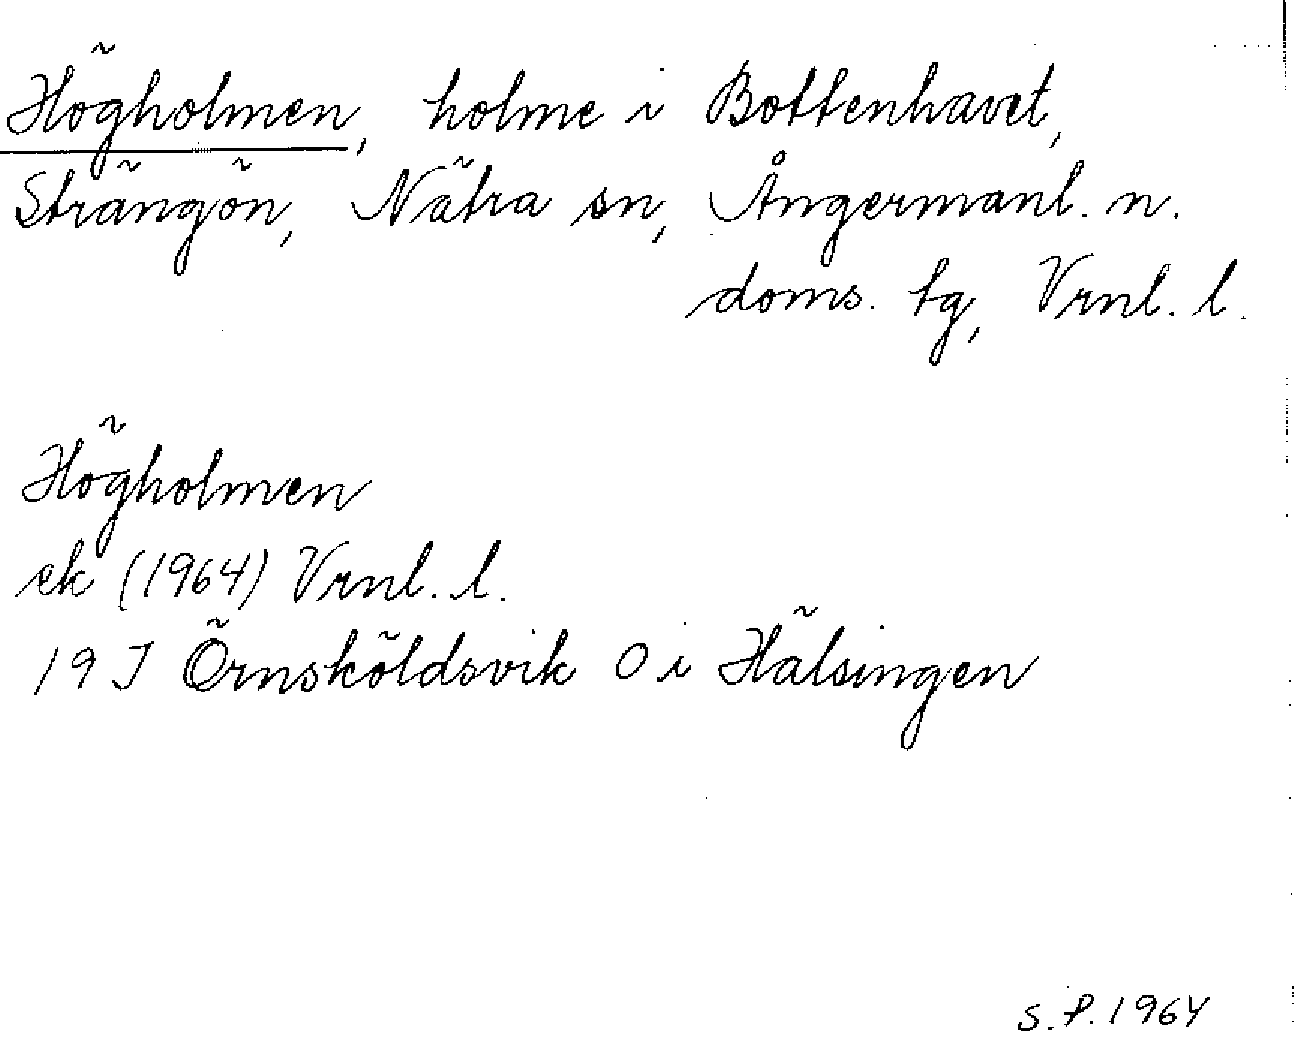 Högholmen, holme i Bottenhavet,
Strängön, Nätra sn, Ångermanl. n.
doms. tg, Vrnl. l.
Högholmen
ek (1964) Vrnl. l.
19 J Örnsköldsvik O i Hälsingen
S.P. 1964